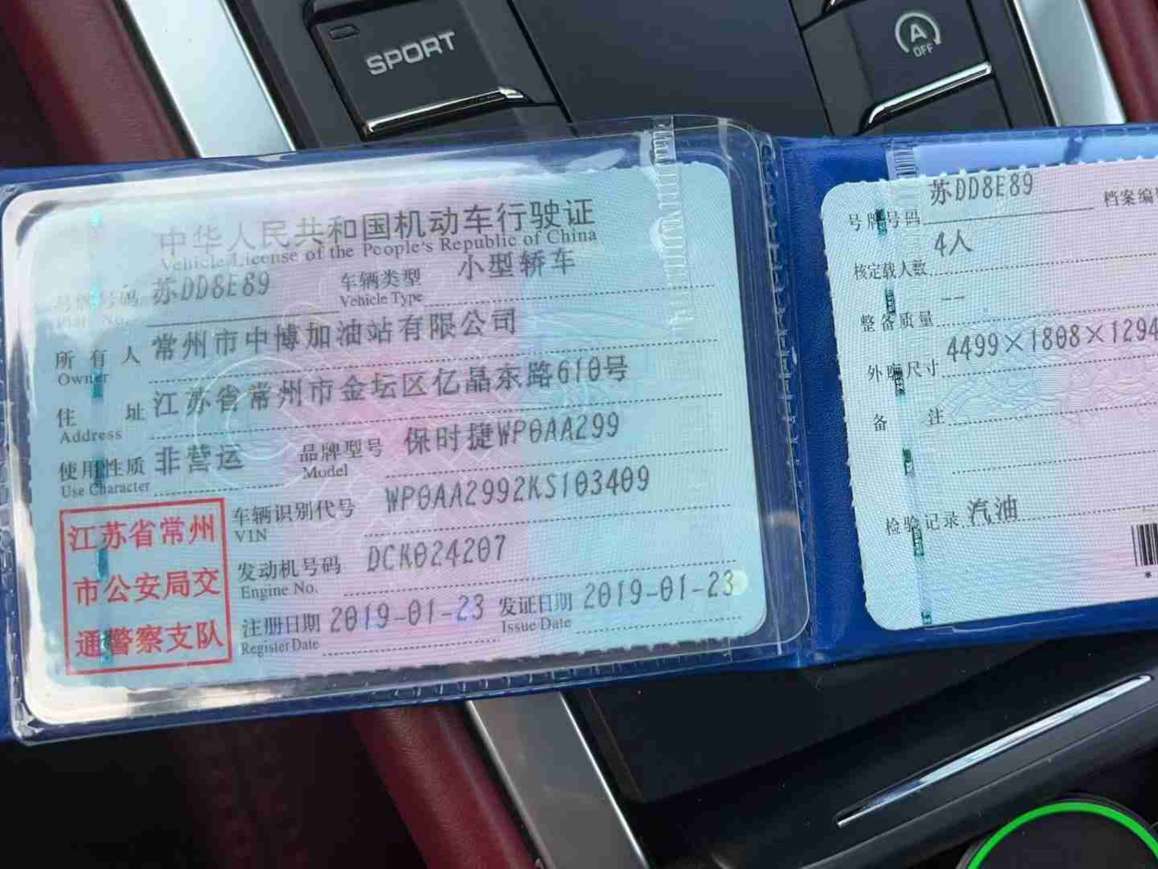 SPORT
A
OFF
中华人民共和国机动车行驶证
Vehicle License of the People's Republic of China
号牌号码 苏DD8E89 车辆类型 小型轿车
Plate No. Vehicle Type
所有人 常州市中博加油站有限公司
Owner
住址 江苏省常州市金坛区亿晶东路610号
Address
使用性质 非营运 品牌型号 保时捷WP0AA299
Use Character Model
江苏省常州
市公安局交
通警察支队
车辆识别代号 WP0AA2992KS103409
VIN
发动机号码 DCK024207
Engine No.
注册日期 2019-01-23 发证日期 2019-01-23
Register Date Issue Date
号牌号码 苏DD8E89 档案编号
核定载人数 4人
整备质量 --
外廓尺寸 4499×1808×1294
备注
检验记录 汽油